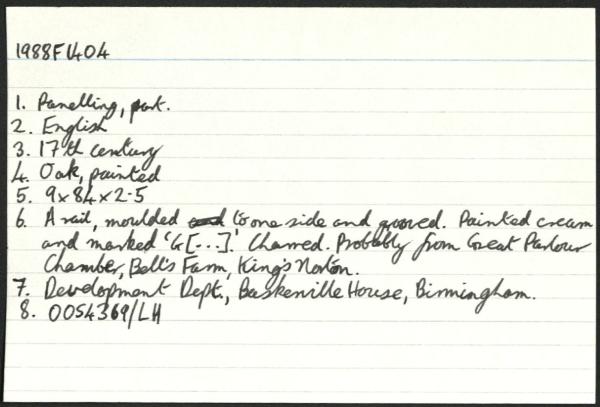 1988FV404
1. Panelling, part.
2. English
3. 17th century
4. Oak, painted
5. 9x84x2.5
6. A rail, moulded and to one side and grooved. Painted cream
and marked 'G[...].' Charred. Probably from Great Parlour
Chamber, Bell's Farm, King's Norton.
7. Development Dept., Baskerville House, Birmingham.
8. 0054369/LH